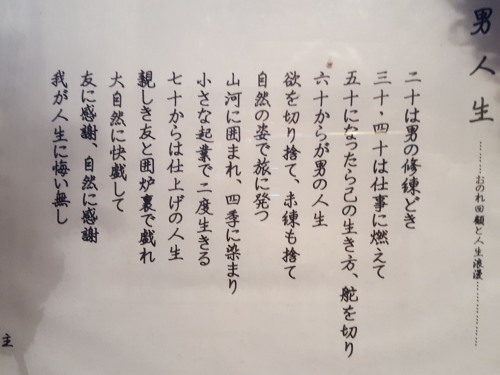 男人生
………おのれ回顧と人生浪漫…………
二十は男の修練どき
三十、四十は仕事に燃えて
五十になったら己の生き方、舵を切り
六十からが男の人生
欲を切り捨て、未練も捨て
自然の姿で旅に発つ
山河に囲まれ、四季に染まり
小さな起業で二度生きる
七十からは仕上げの人生
親しき友と囲炉裏で戯れ
大自然に快戯して
友に感謝、自然に感謝
我が人生に悔い無し
主